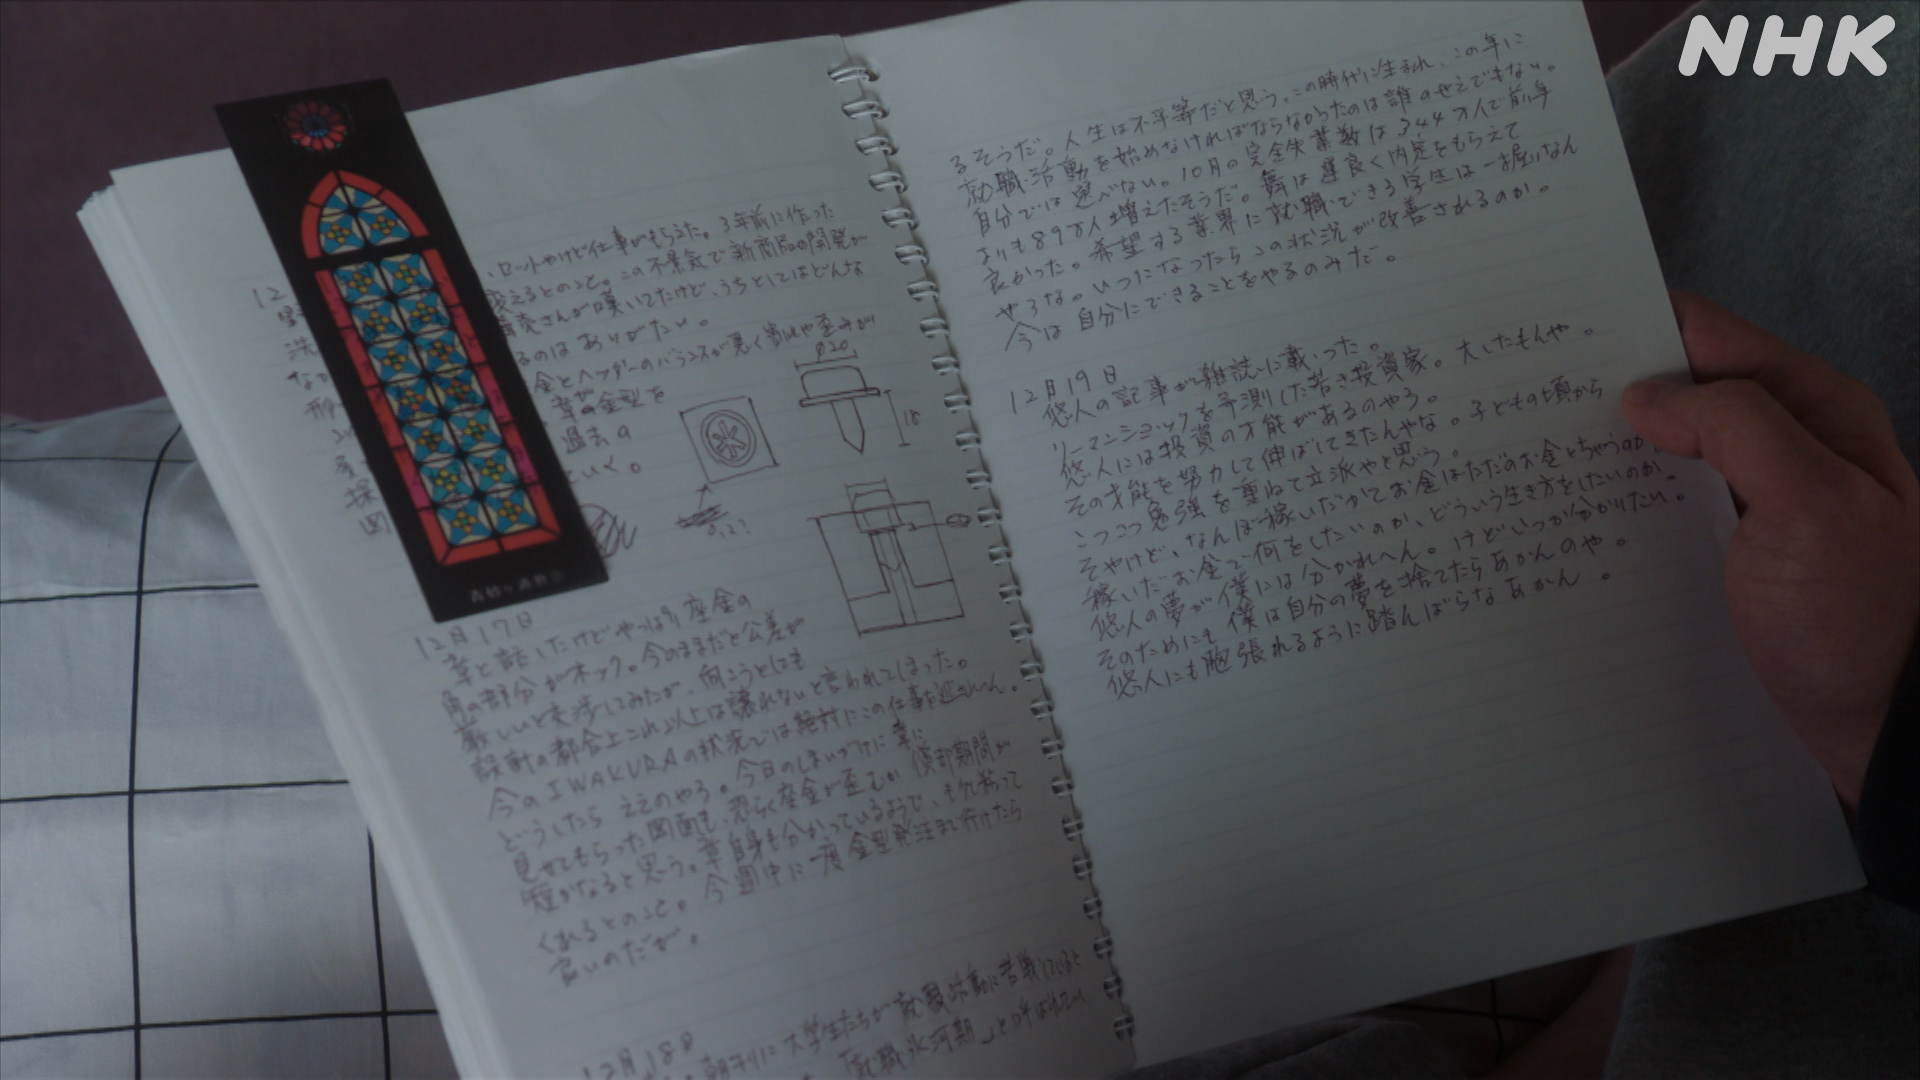 NHK
12
、ロットやけど仕事がもらえた。3年前に作った
変えるとのこと。この不景気で新商品の開発が
売さんが嘆いてたけど、うちとしてはどんな
るのはありがたい。
金とヘッダーのバランスが悪く割れや歪みが
章の金型を
過去の
ていく。
φ20
18
0.12?
12月17日
章と話したけどやっぱり座金の
角の部分がネック。今のままだと公差が
厳しいと交渉してみたが、向こうとしても
設計の都合上これ以上は譲れないと言われてしまった。
今のIWAKURAの状況では絶対にこの仕事を逃されへん。
どうしたらええのやろ。今日のしまいがけに章に
見せてもらった図面も、恐らく座金が歪むか償却期間が
短かなると思う。章自身も分かっているようで、も少し粘って
くれるとのこと。今週中に一度金型発注まで行けたら
良いのだが。
12月18日
朝刊に大学生たちが就職活動に苦戦していると
「就職氷河期」と呼ばれてい
るそうだ。人生は不平等だと思う。この時代に生まれ、この年に
就職活動を始めなければならなかったのは誰のせえでもない。
自分では選べない。10月の完全失業者数は344万人で前年
よりも89万人増えたそうだ。舞は運良く内定をもらえて
良かった。希望する業界に就職できる学生は一握りなん
やろな。いつになったらこの状況が改善されるのか。
今は自分にできることをやるのみだ。
12月19日
悠人の記事が雑誌に載った。
リーマンショックを予測した若き投資家。大したもんや。
悠人には投資の才能があるのやろ。
その才能を努力して伸ばしてきたんやな。子どもの頃から
こつこつ勉強を重ねて立派やと思う。
そやけど、なんぼ稼いだかてお金はただのお金とちゃうのか
稼いだお金で何をしたいのか、どういう生き方をしたいのか。
悠人の夢が僕には分かれへん。けどいつか分かりたい。
そのためにも僕は自分の夢を捨てたらあかんのや。
悠人にも胸張れるように踏んばらなあかん。